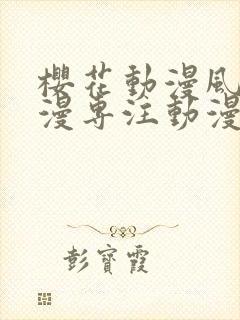 櫻花動漫風
漫專注動漫
彭寶霞